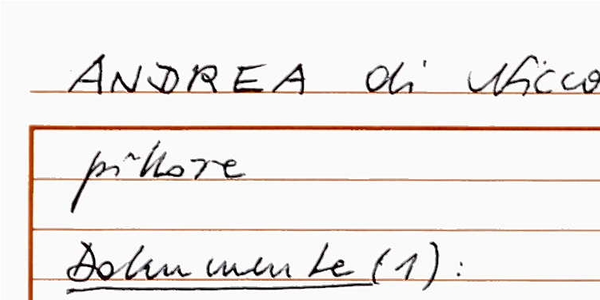 ANDREA di Nicco
pittore
Dokumente (1):